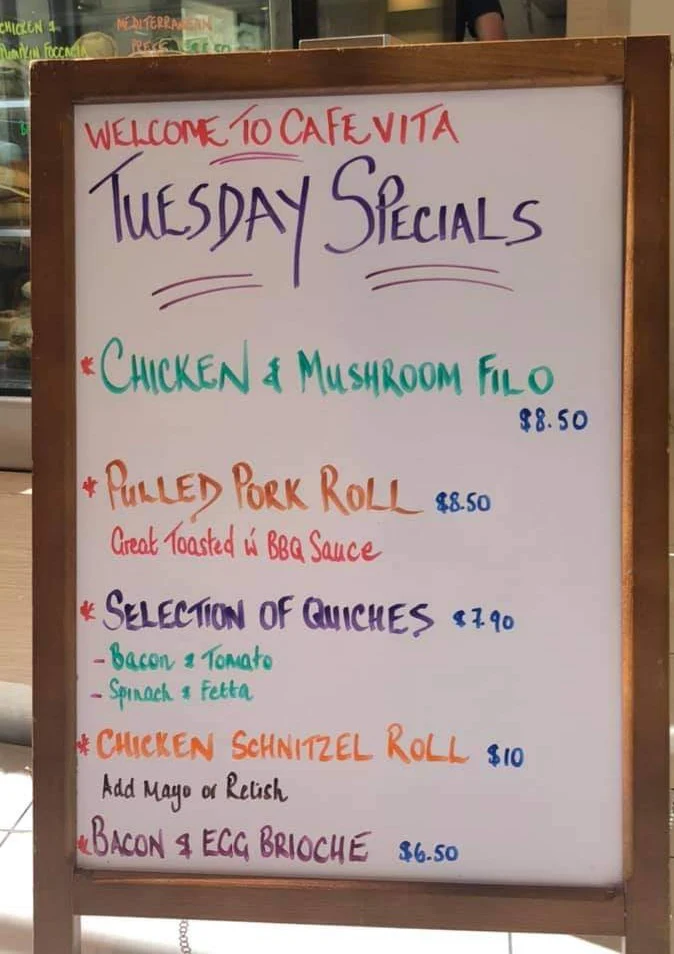 CHICKEN &
PUMPKIN FOCCACIA
MEDITERRANEAN
WELCOME TO CAFE VITA
TUESDAY SPECIALS
* CHICKEN & MUSHROOM FILO
$8.50
* PULLED PORK ROLL $8.50
Great Toasted w BBQ Sauce
* SELECTION OF QUICHES $7.90
- Bacon & Tomato
- Spinach & Fetta
* CHICKEN SCHNITZEL ROLL $10
Add Mayo or Relish
* BACON & EGG BRIOCHE $6.50